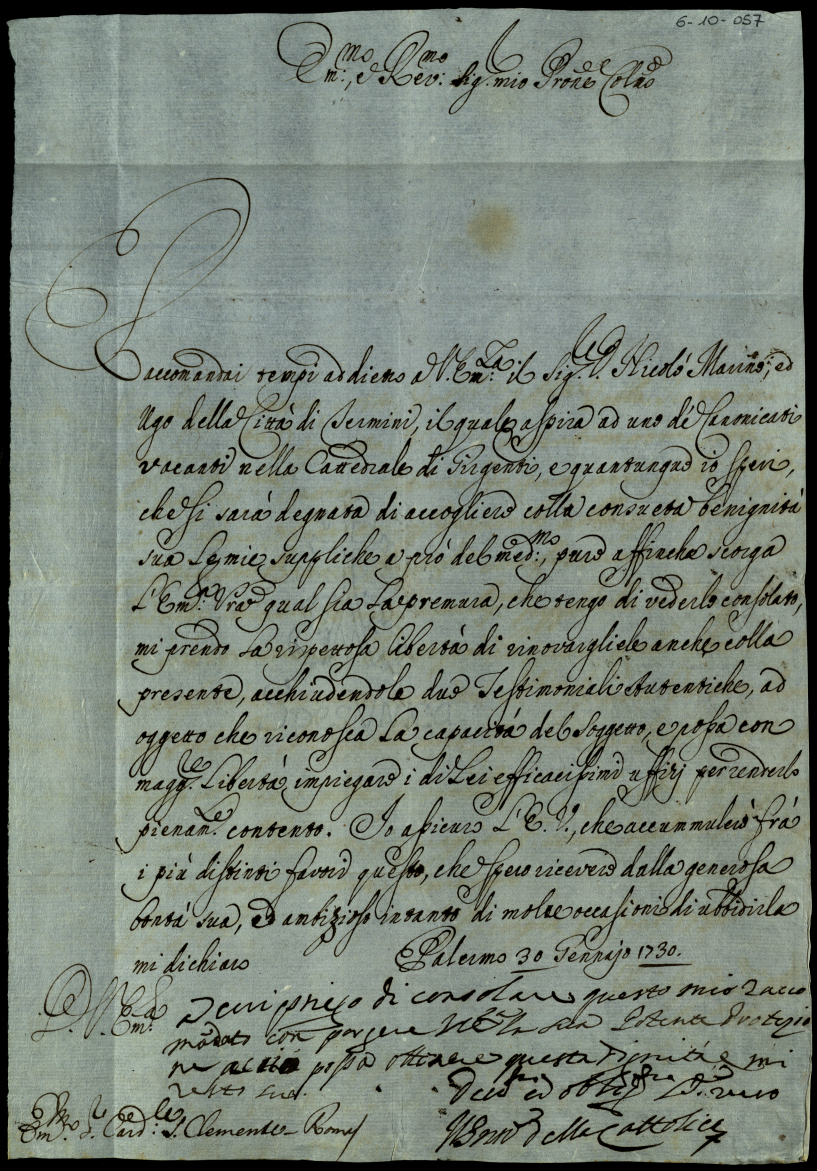 6-10-057
Em:mo, e Rev:mo Sig.r mio Prone Colmo
Raccomandai tempi addietro a V. Em:za il Sig.r D. Nicolò Marino, ed
Ugo della Città di Termini, il quale aspira ad uno de' Canonicati
vacanti nella Cattedrale di Girgenti, e quantunque io speri,
che si sarà degnata di accogliere colla consueta benignità
sua le mie suppliche a prò del med:mo, pure affinche scorga
L'Em:a Vra qual sia la premura, che tengo di vederlo consolato,
mi prendo la rispettosa libertà di rinovargliele anche colla
presente, acchiudendole due Testimoniali Autentiche, ad
oggetto che riconosca la capacità del Soggetto, e possa con
magg.re libertà impiegare i di Lei efficacissimi uffizj per renderlo
pienam.te contento. Io assicuro L'E. V., che accummulerò frà
i più distinti favori questo, che spero ricevere dalla generosa
bontà sua, ed ambizioso intanto di molte occasioni di ubbidirla
mi dichiaro Palermo 30 Gennajo 1730.
D. V. Em:a
di consolare questo mio racco
mādato con porgere la sua Potente Protezio
ne acciò possa ottenere questa Dignità e mi
resto
ed oblig.mo vero
Em:mo S. Card:le S. Clemente Roma
della Cattolica